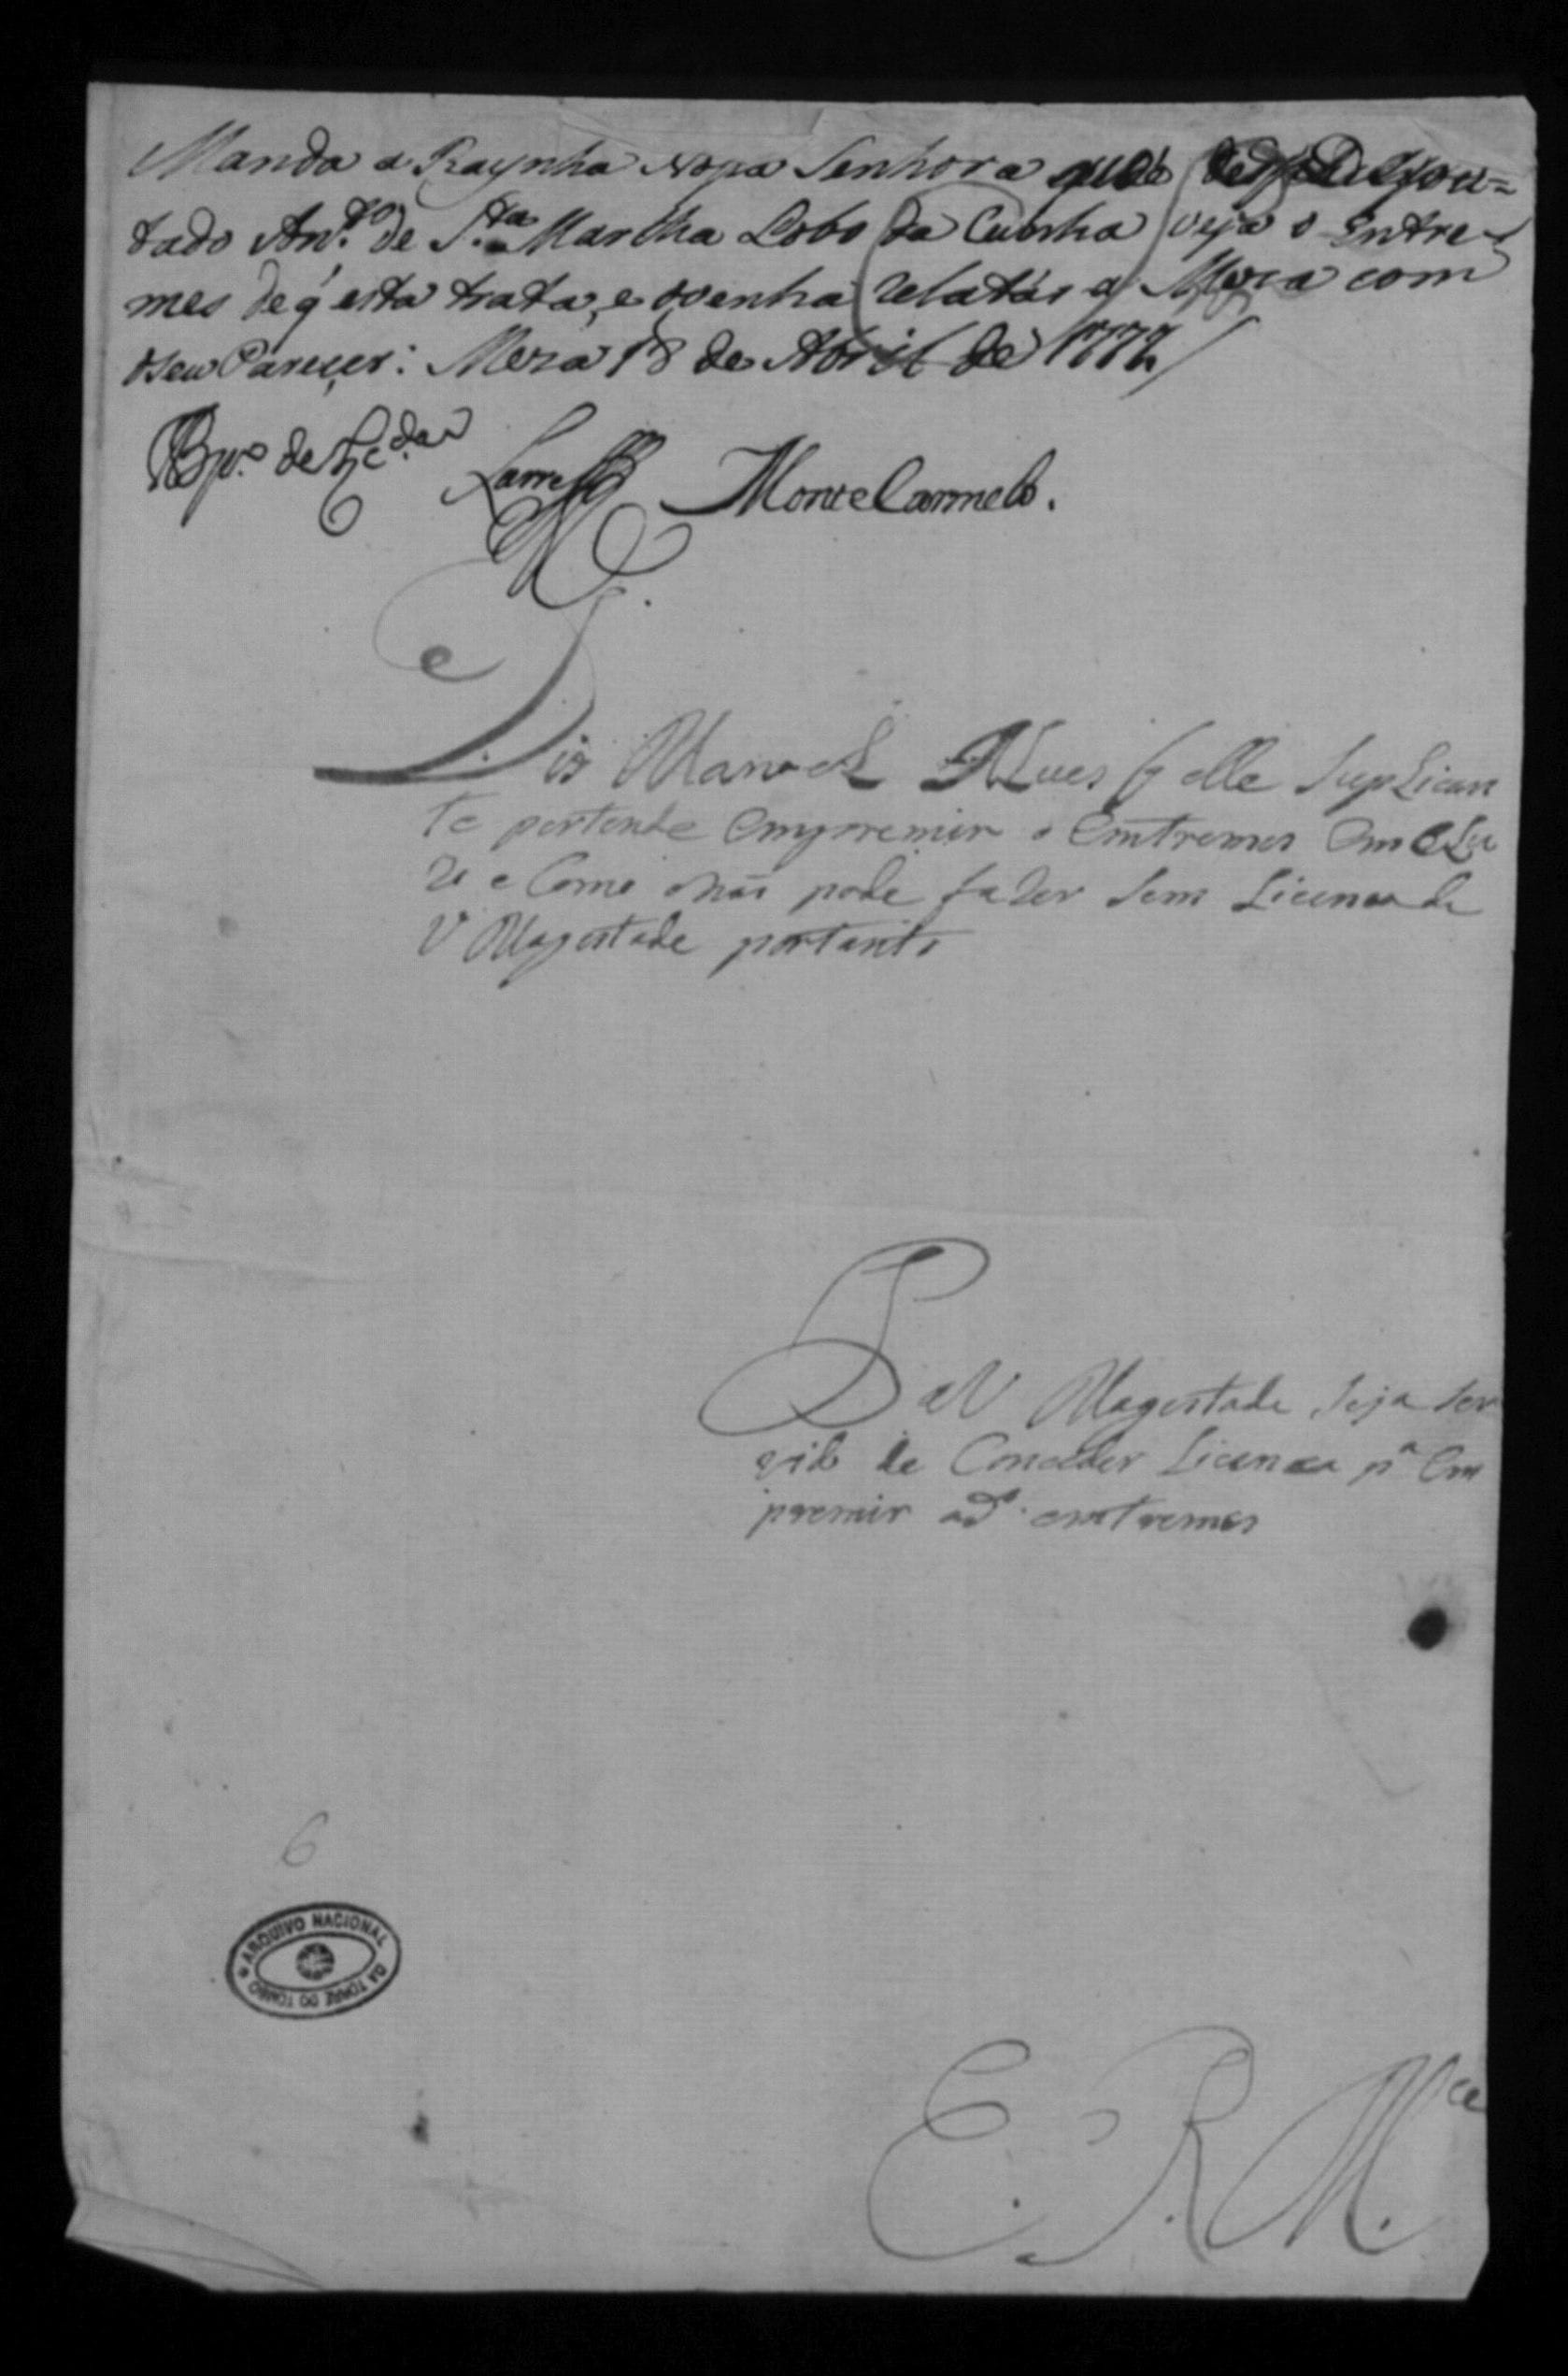 Manda a Raynha Nossa Senhora que o Depu=
tado Ant.º de S.ta Martha Lobo da Cunha veja o Entre-
mes de q̃ esta trata, e o venha relatár a Meza com
o seu Pareçer: Meza 18 de Abril de 1777
Bpo. de
Monte Carmelo.
Dis Manoel Alves q elle Suplican
te pertende empremir o Emtremes
e Como o não pode fazer Sem Licensa de
V Magestade portanto
P a V Magestade Seja Ser
vido de Conceder Licensa pª Em
premir o dº. emtremes
6
ARQUIVO NACIONAL
DA TORRE DO TOMBO
E. R. M.ce